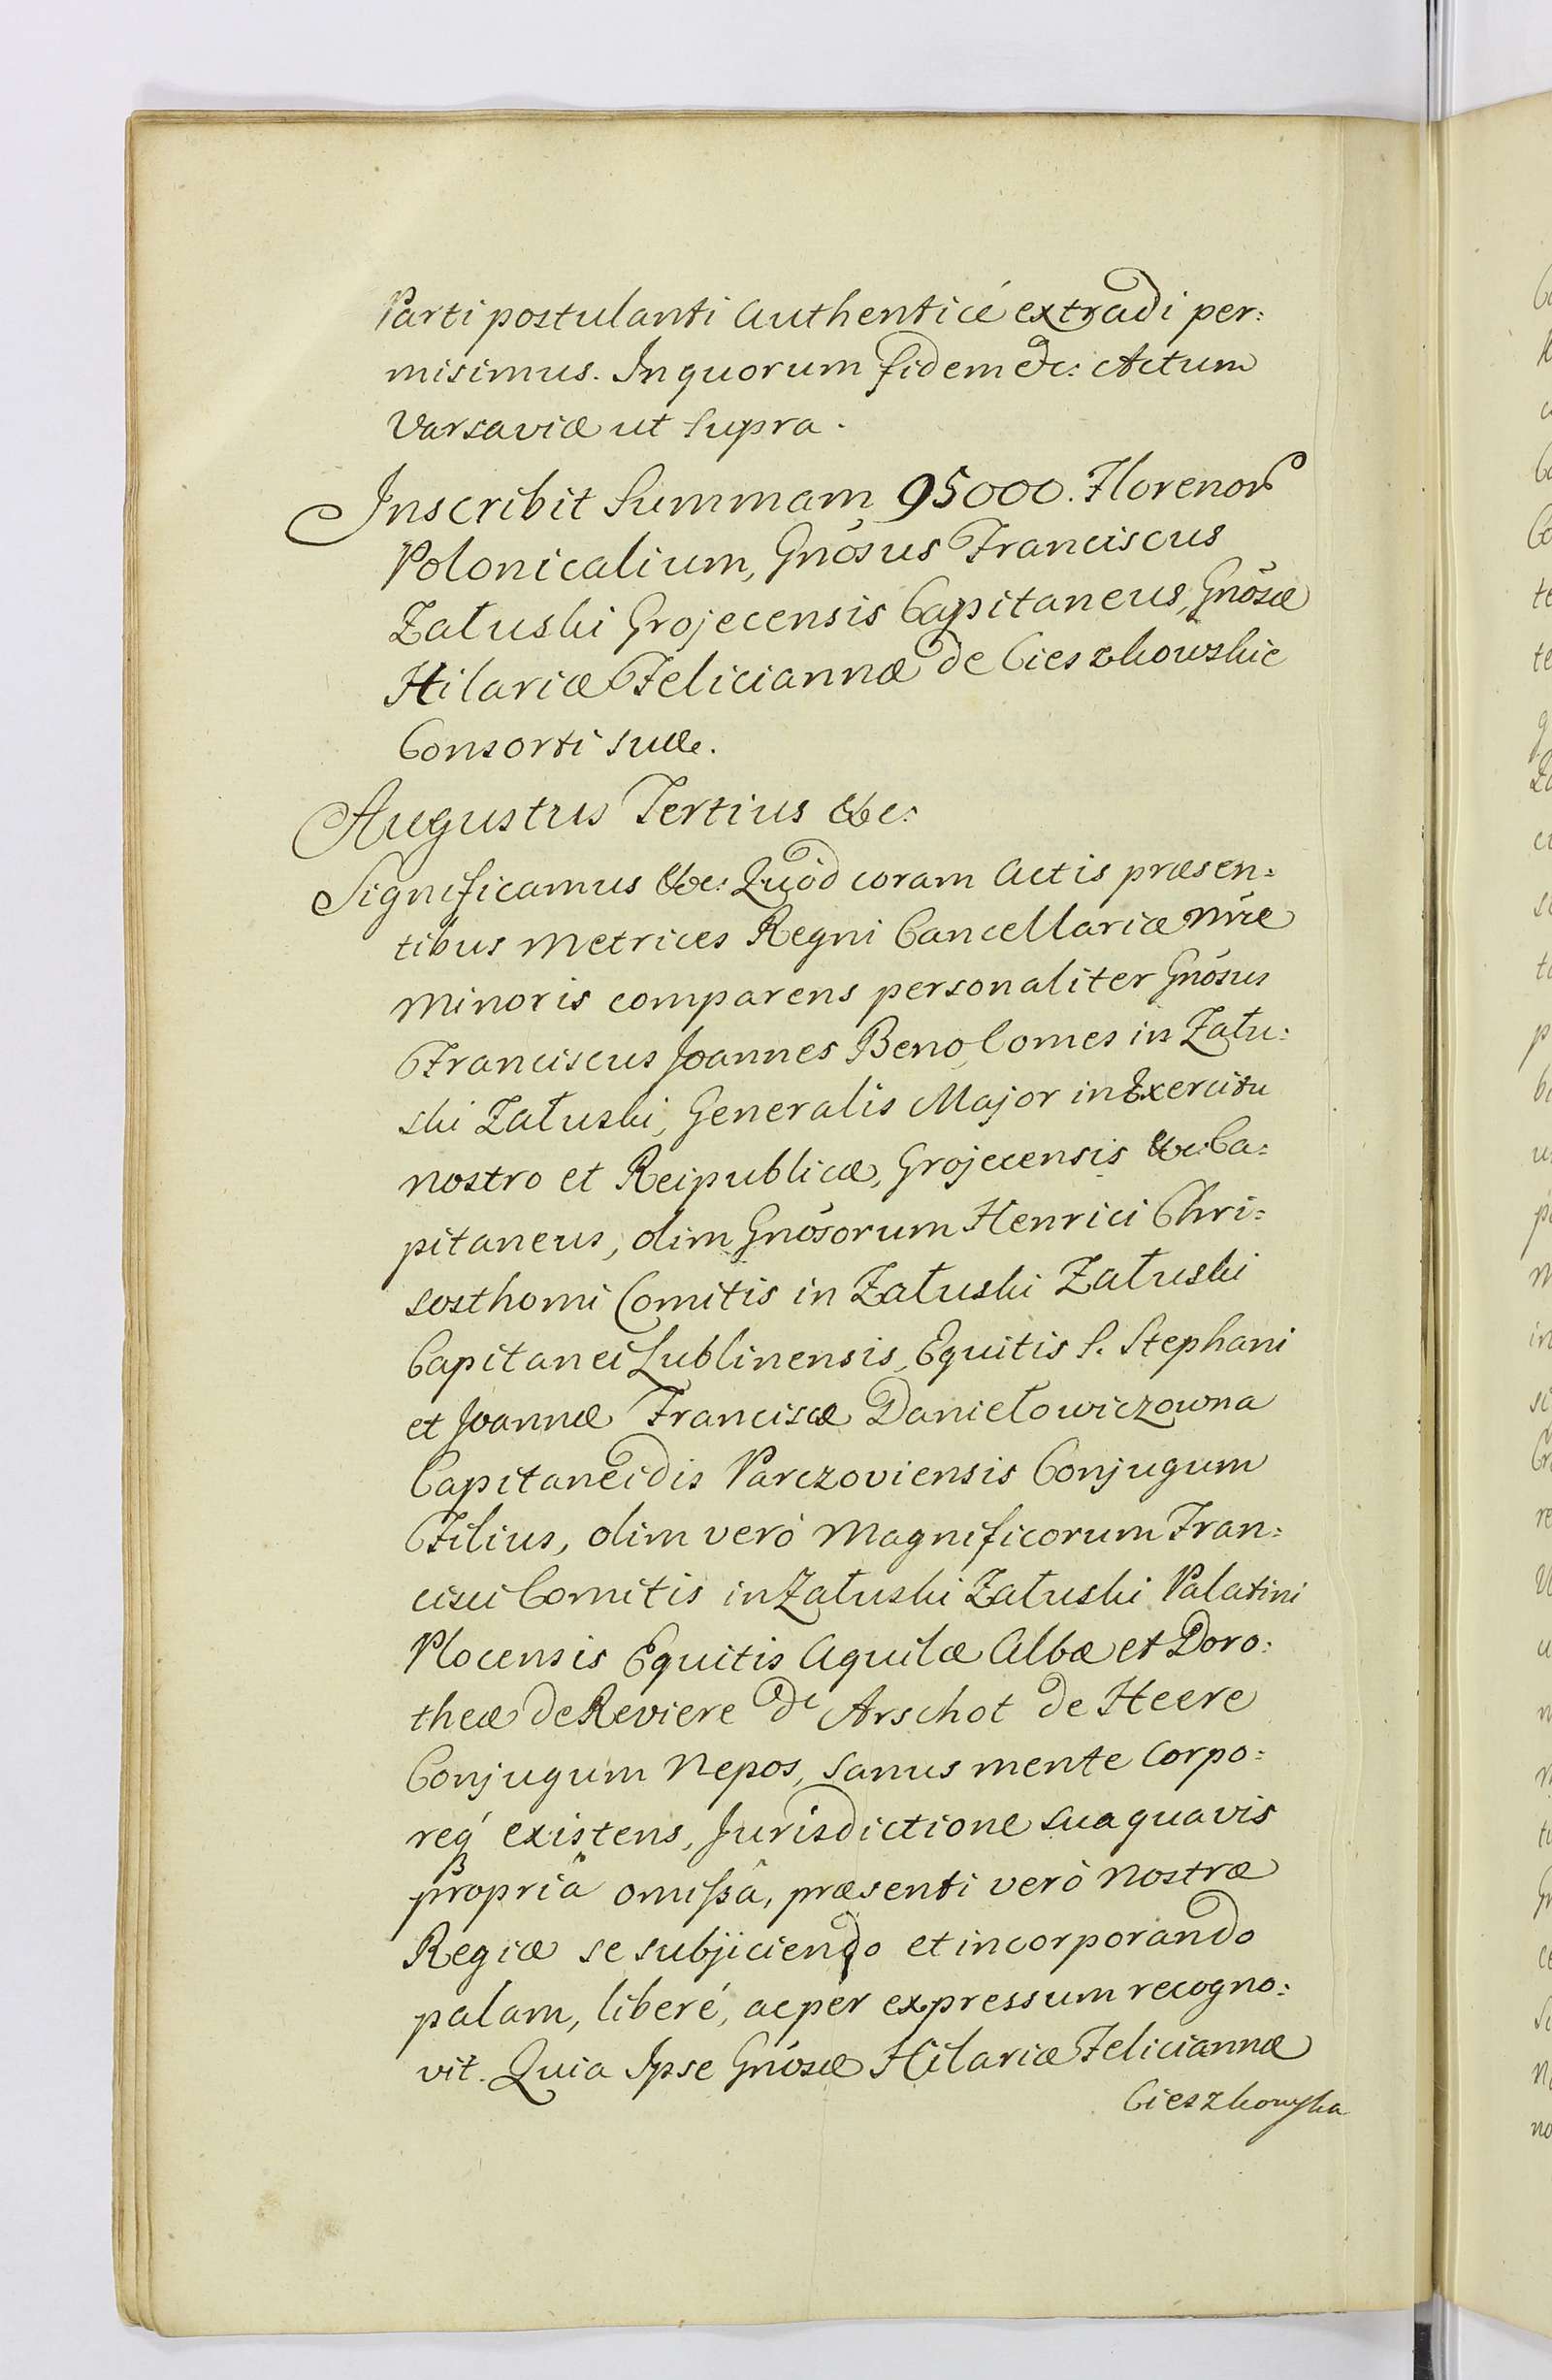 Parti postulanti Authenticé extradi per:
misimus. In quorum fidem &c: Actum
Varsaviæ ut supra.
Inscribit Summam 95000. Florenor
Polonicalium, Gnōsus Franciscus
Załuski Grojecensis Capitaneus, Gnōsæ
Hilariæ Feliciannæ de Cieszkowskie
Consorti suæ.
Augustus Tertius &c:
Significamus &c: Quòd coram Actis præsen:
tibus Metrices Regni Cancellariæ nr̄æ
Minoris comparens personaliter Gnōsus
Franciscus Joannes Beno, Comes in Zału:
ski Załuski, Generalis Major in Exercitu
nostro et Reipublicæ, Grojecensis &c: Ca:
pitaneus, olim Gnōsorum Henrici Chri:
sosthomi Comitis in Załuski Załuski
Capitanei Lublinensis, Equitis S. Stephani
et Joannæ Franciscæ Daniełowiczowna
Capitaneidis Parczoviensis Conjugum
Filius, olim verò Magnificorum Fran:
cisci Comitis in Załuski Załuski Palatini
Plocensis Equitis Aquilæ Albæ et Doro:
theæ de Reviere d' Arschot de Heere
Conjugum Nepos, sanus mente corpo:
req́ existens, Jurisdictione sua quavis
propriâ omissâ, præsenti verò Nostræ
Regiæ se subjiciendo et incorporando
palam, liberé, ac per expressum recogno:
vit. Quia Ipse Gnōsæ Hilariæ Feliciannæ
Cieszkowska